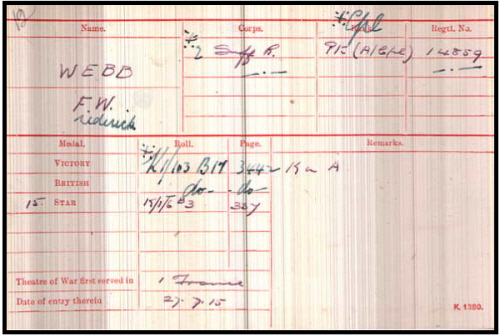 Name. Corps. Rank. Regtl. No.
Cpl
WEBB 2 Suff R. Pte (A/Cpl) 14859
F.W.
rederick
Medal. Roll. Page. Remarks.
VICTORY K1/103 B17 3442 K in A
BRITISH do do
15 STAR 357
Theatre of War first served in 1 France
Date of entry therein 27.7.15
K. 1380.